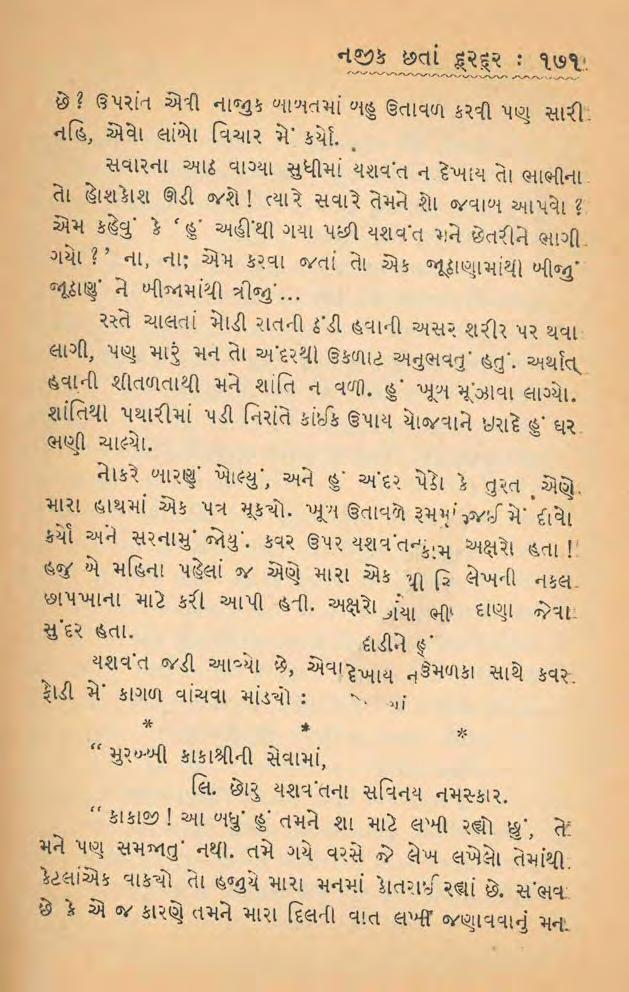 નજીક છતાં દૂરદૂર : ૧૭૧
છે? ઉપરાંત એવી નાજુક બાબતમાં બહુ ઉતાવળ કરવી પણ સારી
નહિ, એવો લાંબો વિચાર મેં કર્યો.
સવારના આઠ વાગ્યા સુધીમાં યશવંત ન દેખાય તો ભાભીના
તો હોશકોશ ઊડી જશે! ત્યારે સવારે તેમને શો જવાબ આપવો?
એમ કહેવું કે ‘હું અહીંથી ગયા પછી યશવંત મને છેતરીને ભાગી
ગયો?’ ના, ના; એમ કરવા જતાં તો એક જૂઠાણામાંથી બીજું
જૂઠાણું ને બીજામાંથી ત્રીજું...
રસ્તે ચાલતાં મોડી રાતની ઠંડી હવાની અસર શરીર પર થવા
લાગી, પણ મારું મન તો અંદરથી ઉકળાટ અનુભવતું હતું. અર્થાત્
હવાની શીતળતાથી મને શાંતિ ન વળી. હું ખૂબ મૂંઝાવા લાગ્યો.
શાંતિથી પથારીમાં પડી નિરાંતે કાંઈક ઉપાય યોજવાને ઇરાદે હું ઘર
ભણી ચાલ્યો.
નોકરે બારણું ખોલ્યું, અને હું અંદર પેઠો કે તુરત એણે
મારા હાથમાં એક પત્ર મૂક્યો. ખૂબ ઉતાવળે રૂમમાં જઈ મેં દીવો
કર્યો અને સરનામું જોયું. કવર ઉપર યશવંતના અક્ષરો હતા!
હજુ બે મહિના પહેલાં જ એણે મારા એક લેખની નકલ
છાપખાના માટે કરી આપી હતી. અક્ષરો દાણા જેવા
સુંદર હતા.
દાડીને હું
યશવંત જડી આવ્યો છે, એવા દેખાય ન ઉમળકા સાથે કવર
ફોડી મેં કાગળ વાંચવા માંડ્યો :
* * *
“મુરબ્બી કાકાશ્રીની સેવામાં,
લિ. છોરુ યશવંતના સવિનય નમસ્કાર.
“કાકાજી! આ બધું હું તમને શા માટે લખી રહ્યો છું, તે
મને પણ સમજાતું નથી. તમે ગયે વરસે જે લેખ લખેલો તેમાંથી
કેટલાંએક વાક્યો તો હજુયે મારા મનમાં કોતરાઈ રહ્યાં છે. સંભવ
છે કે એ જ કારણે તમને મારા દિલની વાત લખી જણાવવાનું મન